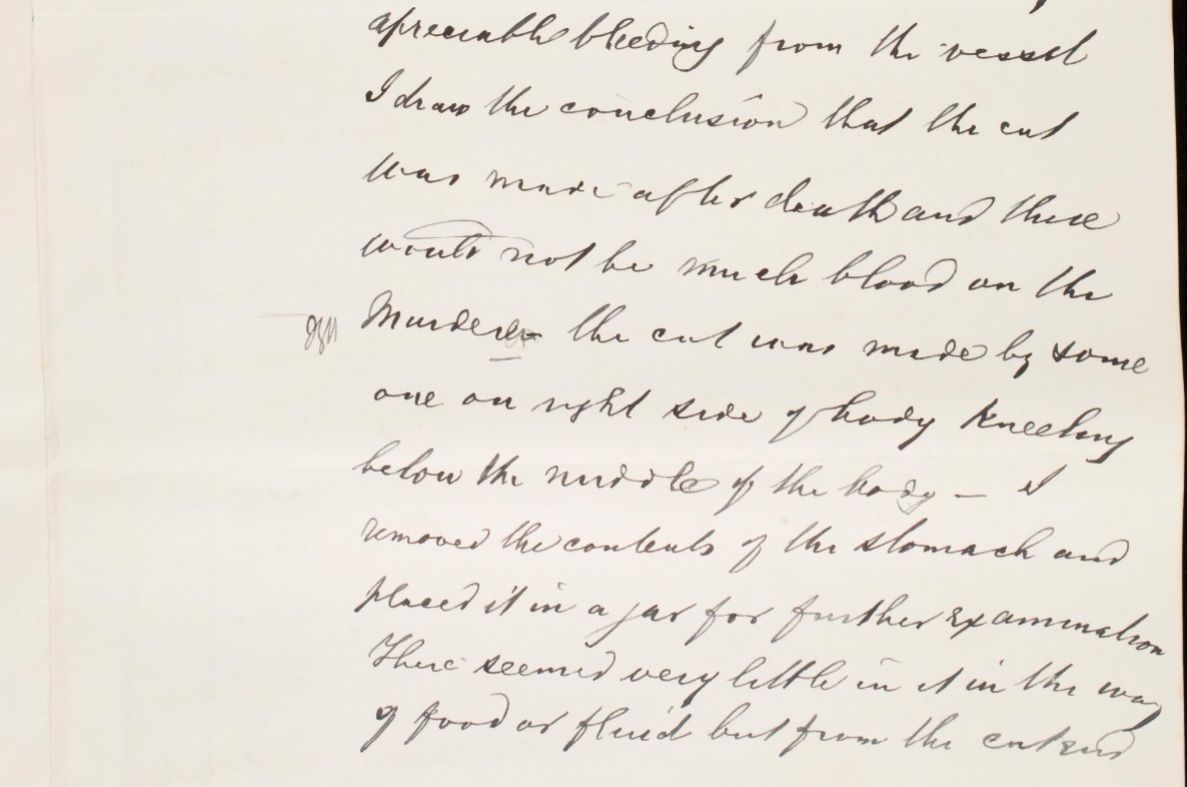 apreciable bleeding from the vessel
I draw the conclusion that the cut
was made after death and there
would not be much blood on the
Murderer the cut was made by some
one on right side of body kneeling
below the middle of the body — I
removed the contents of the stomach and
placed it in a jar for further examination
There seemed very little in it in the way
of food or fluid but from the cut end